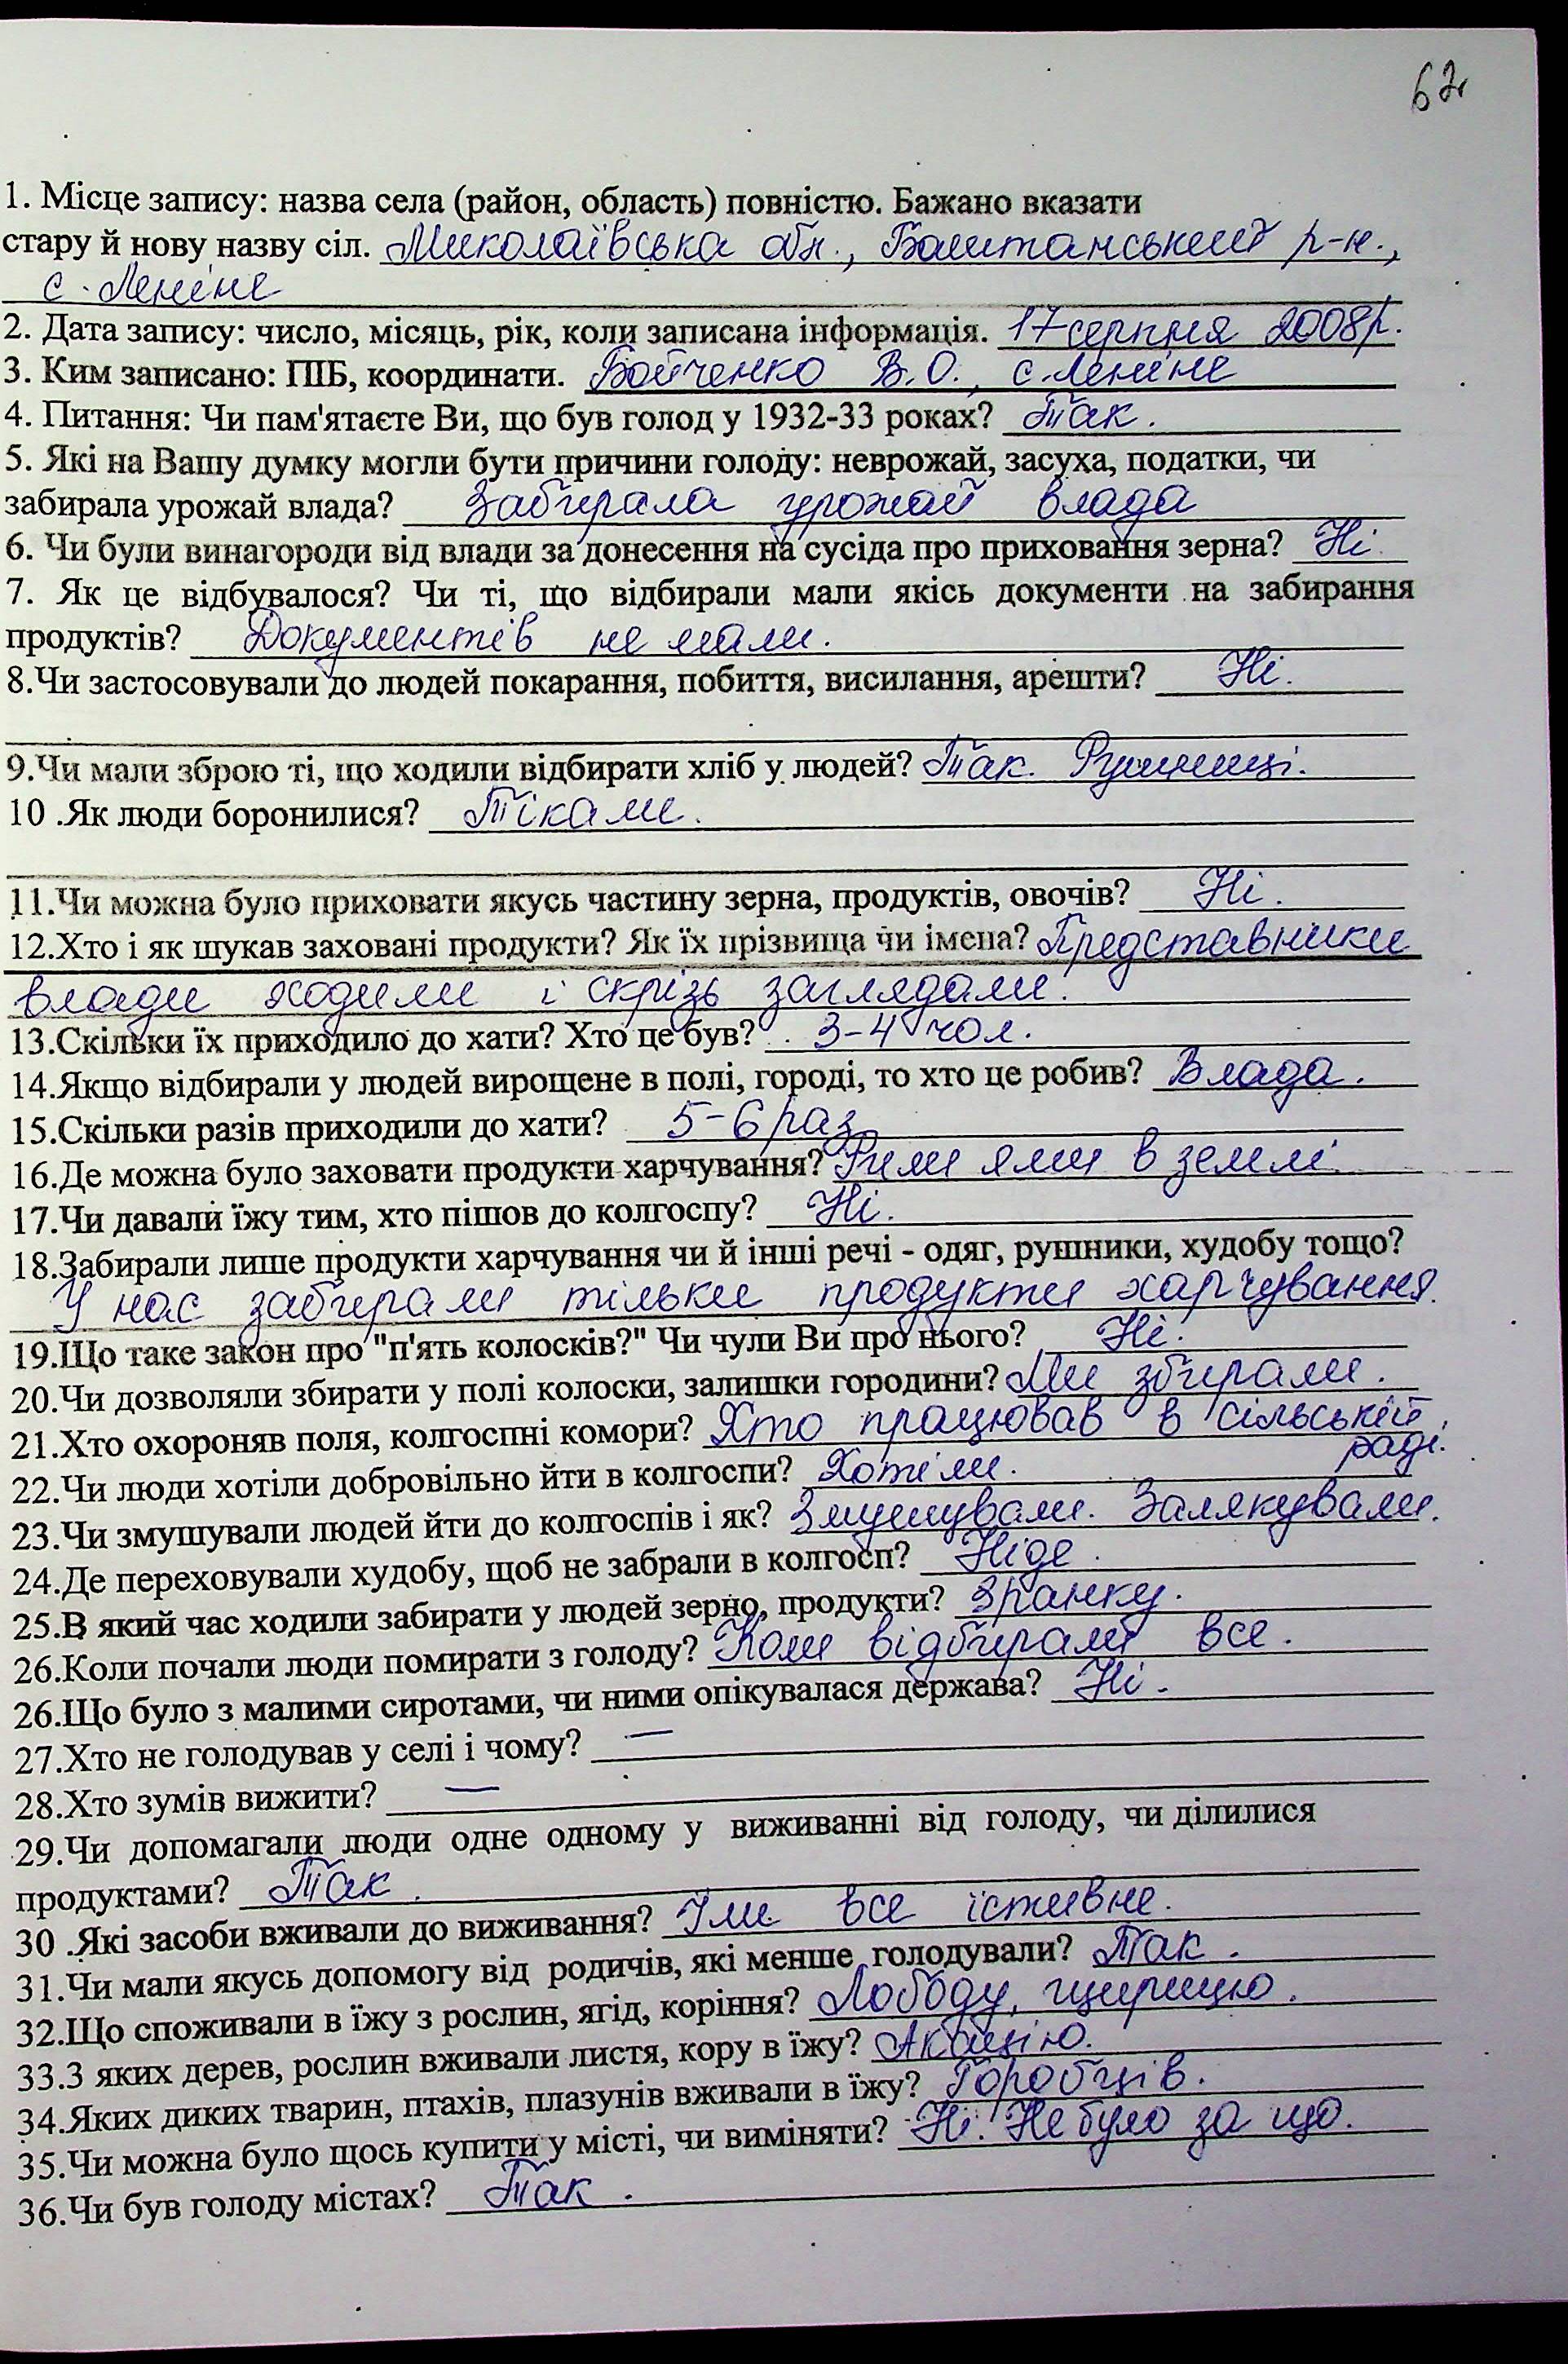 62
1. Місце запису: назва села (район, область) повністю. Бажано вказати
стару й нову назву сіл. Миколаївська обл., Баштанський р-н.,
с. Леніне
2. Дата запису: число, місяць, рік, коли записана інформація. 17 серпня 2008р.
3. Ким записано: ПІБ, координати. Бойченко В.О., с. Леніне
4. Питання: Чи пам'ятаєте Ви, що був голод у 1932-33 роках? Так.
5. Які на Вашу думку могли бути причини голоду: неврожай, засуха, податки, чи
забирала урожай влада? Забирала урожай влада
6. Чи були винагороди від влади за донесення на сусіда про приховання зерна? Ні.
7. Як це відбувалося? Чи ті, що відбирали мали якісь документи на забирання
продуктів? Документів не мали.
8.Чи застосовували до людей покарання, побиття, висилання, арешти? Ні.
9.Чи мали зброю ті, що ходили відбирати хліб у людей? Так. Рушниці.
10 .Як люди боронилися? Тікали.
11.Чи можна було приховати якусь частину зерна, продуктів, овочів? Ні.
12.Хто і як шукав заховані продукти? Як їх прізвища чи імена? Представники
влади ходили і скрізь заглядали.
13.Скільки їх приходило до хати? Хто це був? 3-4 чол.
14.Якщо відбирали у людей вирощене в полі, городі, то хто це робив? Влада.
15.Скільки разів приходили до хати? 5-6 раз
16.Де можна було заховати продукти харчування? Рили ями в землі.
17.Чи давали їжу тим, хто пішов до колгоспу? Ні.
18.Забирали лише продукти харчування чи й інші речі - одяг, рушники, худобу тощо?
У нас забирали тільки продукти харчування.
19.Що таке закон про "п'ять колосків?" Чи чули Ви про нього? Ні.
20.Чи дозволяли збирати у полі колоски, залишки городини? Ми збирали.
21.Хто охороняв поля, колгоспні комори? Хто працював в сільській
раді.
22.Чи люди хотіли добровільно йти в колгоспи? Хотіли.
23.Чи змушували людей йти до колгоспів і як? Змушували. Залякували.
24.Де переховували худобу, щоб не забрали в колгосп? Ніде.
25.В який час ходили забирати у людей зерно, продукти? Зранку.
26.Коли почали люди помирати з голоду? Коли відбирали все.
26.Що було з малими сиротами, чи ними опікувалася держава? Ні.
27.Хто не голодував у селі і чому? —
28.Хто зумів вижити? —
29.Чи допомагали люди одне одному у виживанні від голоду, чи ділилися
продуктами? Так.
30 .Які засоби вживали до виживання? Їли все їстивне.
31.Чи мали якусь допомогу від родичів, які менше голодували? Так.
32.Що споживали в їжу з рослин, ягід, коріння? Лободу, щирицю.
33.З яких дерев, рослин вживали листя, кору в їжу? Акацію.
34.Яких диких тварин, птахів, плазунів вживали в їжу? Горобців.
35.Чи можна було щось купити у місті, чи виміняти? Ні. Не було за що.
36.Чи був голоду містах? Так.